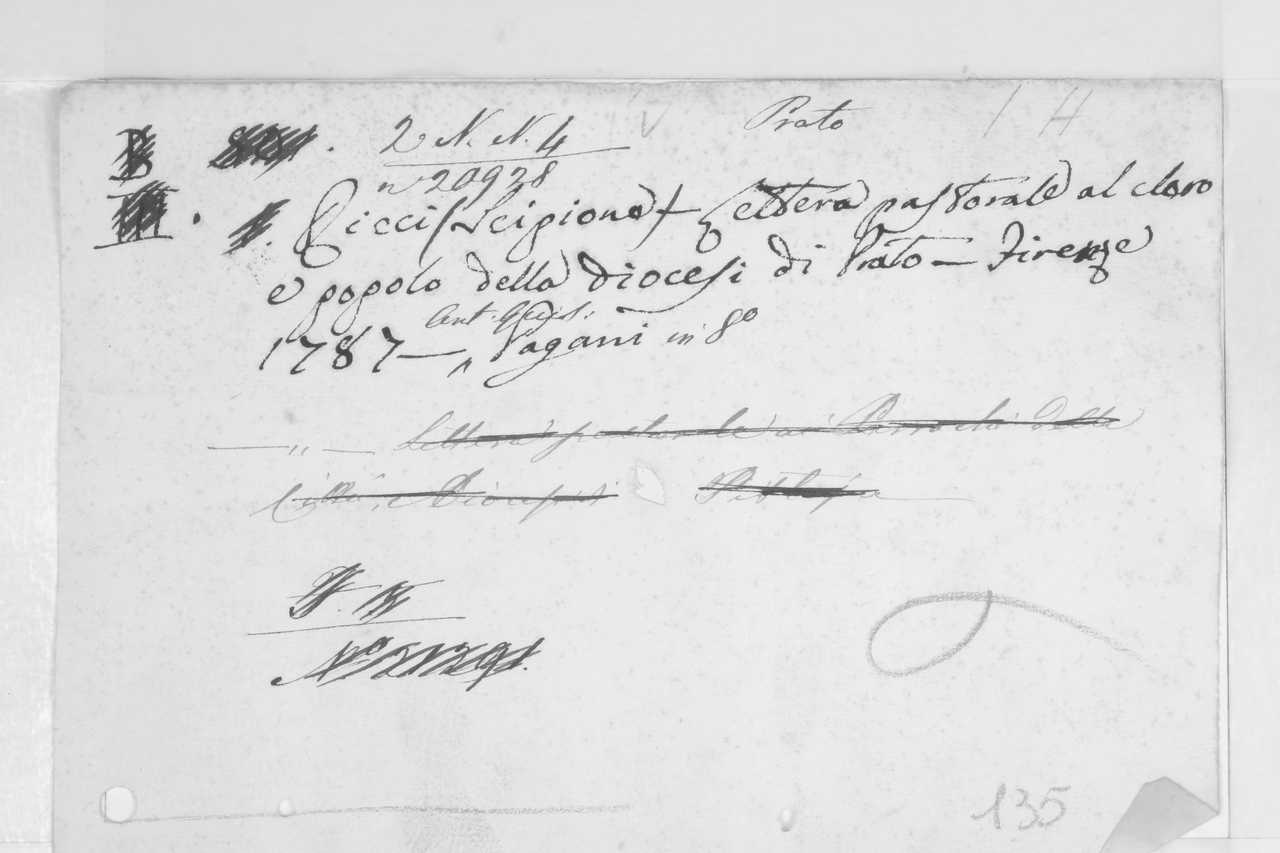 Prato
1 H
2 N. N. 4
nº 20928
Ricci (Scipione) Lettera pastorale al clero
e popolo della Diocesi di Prato — Firenze
1787 — Pagani in 8º
— „ — Lettera pastorale ai Parrochi della
Città, e Diocesi di Pistoja
135